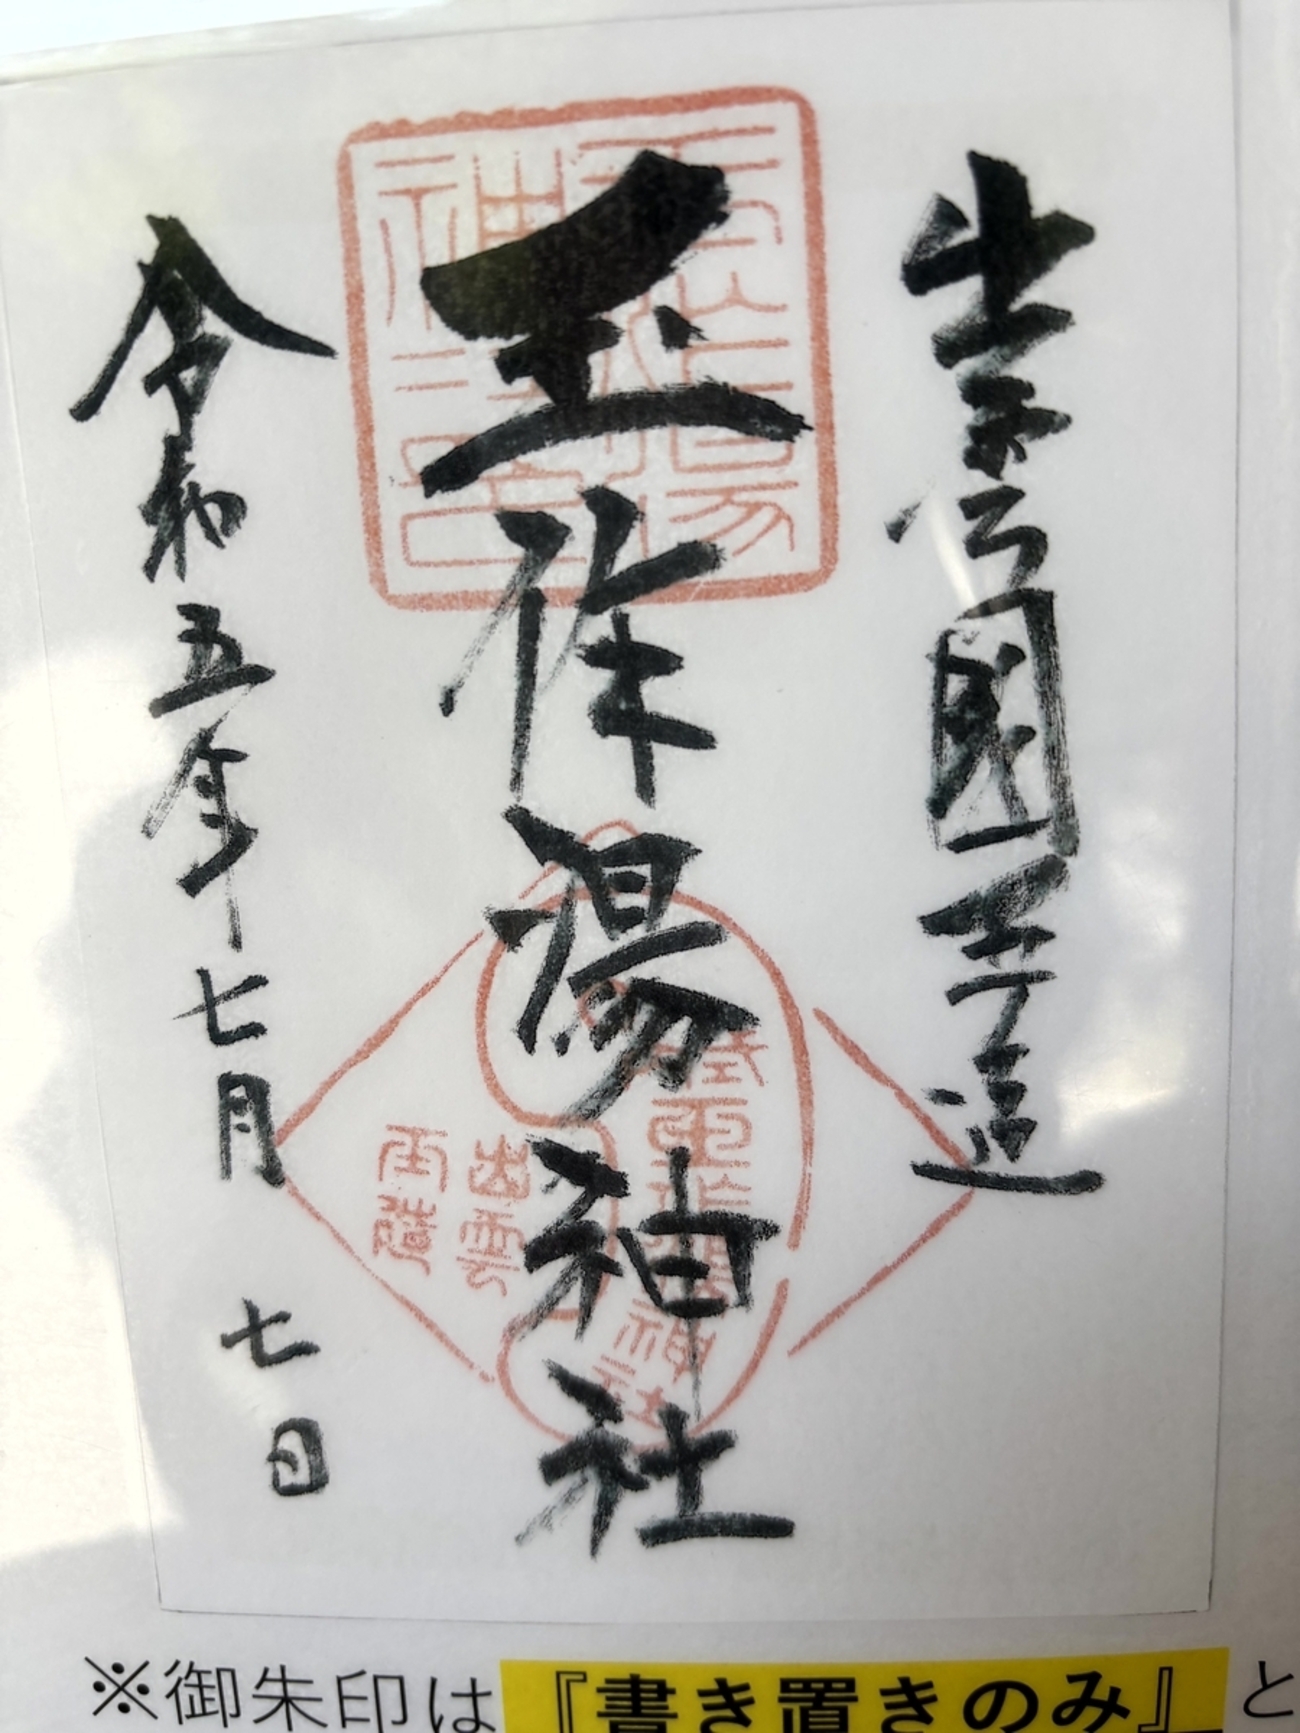 出雲國玉造
玉作湯神社
令和五年七月七日
出雲
玉造
玉作湯神社
※御朱印は『書き置きのみ』と